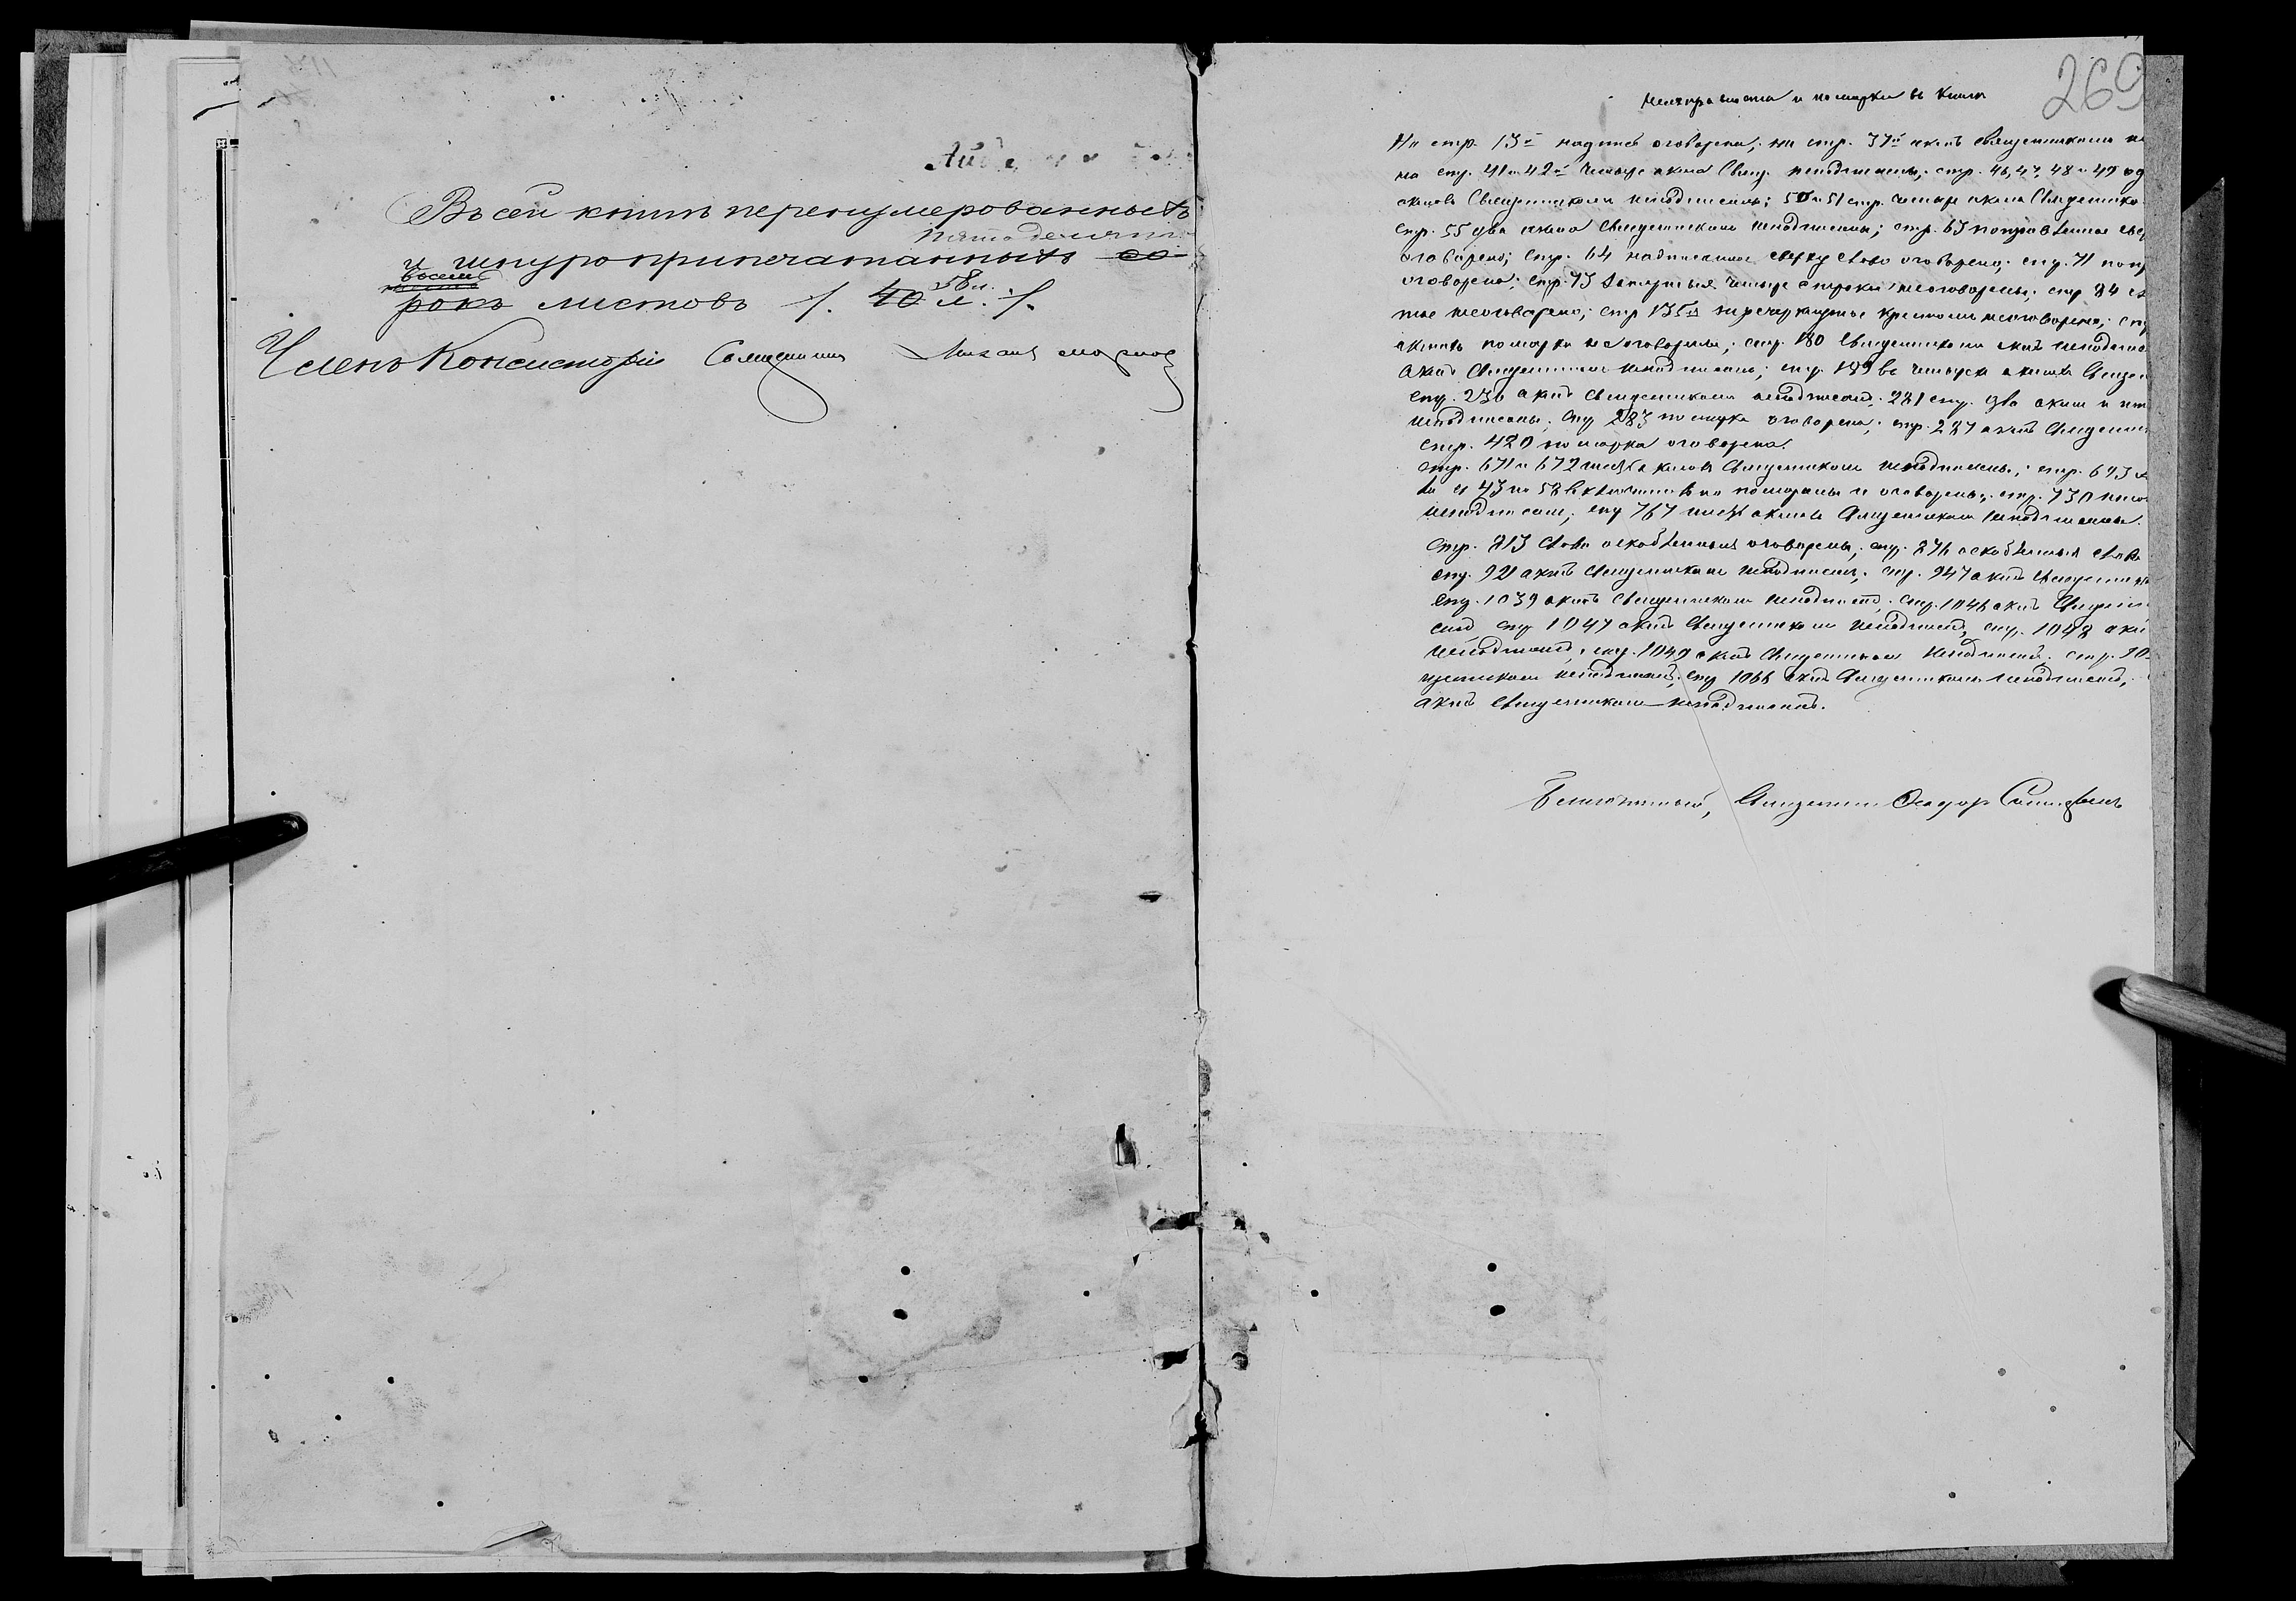 Въ сей книгѣ перенумерованныхъ
пятьдесятъ
и шнуроприпечатанныхъ со
восемь
рокъ листовъ /. 40 л. 58 л. /.
Членъ Консисторіи Священникъ Михаилъ
269
Неисправности и помарки въ книгѣ
На стр. 13й надпись оговорена; на стр. 37й актъ священникомъ не
на стр. 41 и 42й четыре акта Свящ. неподписаны; стр. 46, 47, 48 и 49 од
актовъ Священникомъ неподписаны; 50 и 51 стр. четыре акта Священнико
стр. 55 два акта Священникомъ неподписаны; стр. 63 поправленное
оговорено; стр. 64 надписанное сверху слово оговорено; стр. 71 попр
оговорена; стр. 73 четыре строки неоговорены; стр 84
тое неоговорено; стр 135я перечеркнутое крестомъ неоговорено; стр
актахъ помарки неоговорены; стр. 180 Священникомъ актъ неподписа
актъ Священникомъ неподписанъ; стр. 189 въ четырехъ актахъ Священ
стр. 236 актъ Священникомъ неподписанъ; 281 стр. два акта
неподписаны; стр 283 помарка оговорена; стр. 287 актъ Священни
стр. 420 помарка оговорена.
стр. 671 и 672 шесть актовъ Священникомъ неподписаны; стр. 693
съ 43 по 58 включительно помараны и оговорены; стр. 730
неподписанъ; стр 767 шесть актовъ Священникомъ неподписаны.
Стр. 813 слова оскобленныя оговорены; стр. 876 оскобленныя слова
стр. 921 актъ Священникомъ неподписанъ; стр. 947 актъ Священник
стр. 1039 актъ Священникомъ неподписанъ; стр. 1046 актъ Священ
санъ, стр 1047 актъ Священникомъ неподписанъ, стр. 1048 акт
неподписанъ; стр. 1049 актъ Священникомъ неподписанъ; стр. 10
щенникомъ неподписанъ; стр 1066 актъ Священникомъ неподписанъ,
актъ Священникомъ неподписанъ.
Священникъ Ѳеодоръ